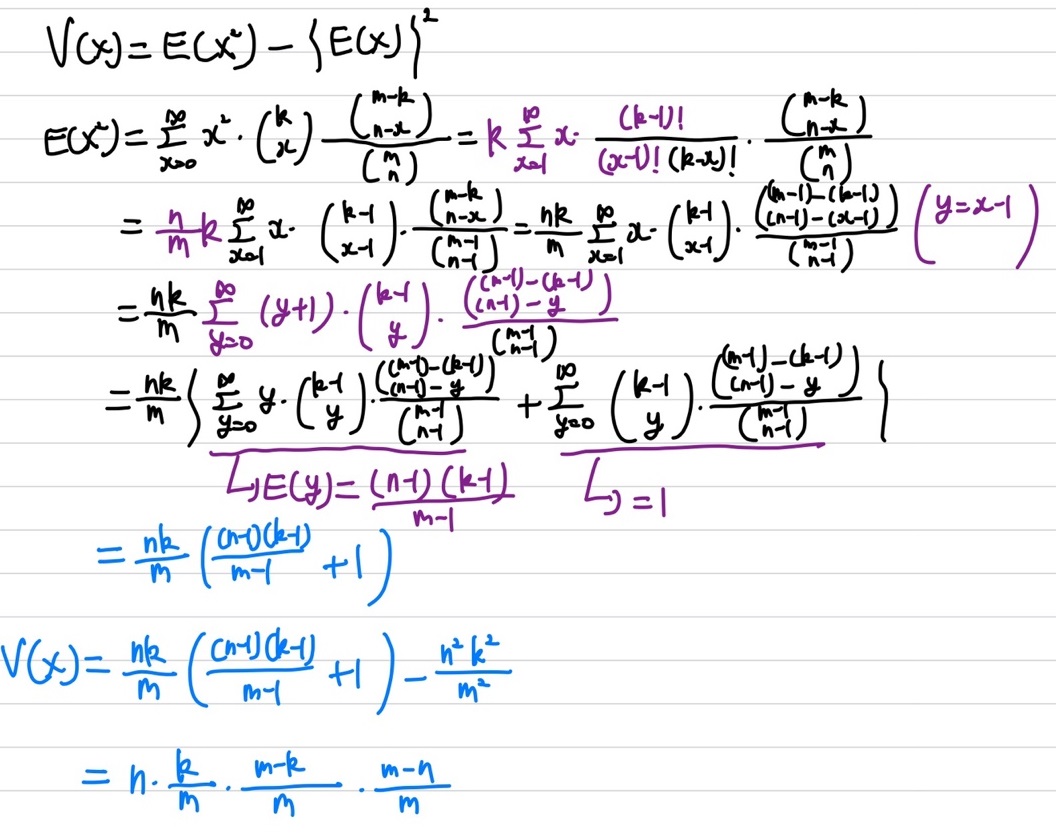 V(x) = E(x²) - {E(x)}²
E(x²) = ∑_{x=0}^{∞} x² · \binom{k}{x} \frac{\binom{m-k}{n-x}}{\binom{m}{n}} = k ∑_{x=1}^{∞} x · \frac{(k-1)!}{(x-1)!(k-x)!} · \frac{\binom{m-k}{n-x}}{\binom{m}{n}}
= \frac{n}{m} k ∑_{x=1}^{∞} x · \binom{k-1}{x-1} · \frac{\binom{m-k}{n-x}}{\binom{m-1}{n-1}} = \frac{nk}{m} ∑_{x=1}^{∞} x · \binom{k-1}{x-1} · \frac{\binom{(m-1)-(k-1)}{(n-1)-(x-1)}}{\binom{m-1}{n-1}} (y=x-1)
= \frac{nk}{m} ∑_{y=0}^{∞} (y+1) · \binom{k-1}{y} · \frac{\binom{(m-1)-(k-1)}{(n-1)-y}}{\binom{m-1}{n-1}}
= \frac{nk}{m} { ∑_{y=0}^{∞} y · \binom{k-1}{y} · \frac{\binom{(m-1)-(k-1)}{(n-1)-y}}{\binom{m-1}{n-1}} + ∑_{y=0}^{∞} \binom{k-1}{y} · \frac{\binom{(m-1)-(k-1)}{(n-1)-y}}{\binom{m-1}{n-1}} }
↳ E(y) = \frac{(n-1)(k-1)}{m-1} ↳ = 1
= \frac{nk}{m} ( \frac{(n-1)(k-1)}{m-1} + 1 )
V(x) = \frac{nk}{m} ( \frac{(n-1)(k-1)}{m-1} + 1 ) - \frac{n²k²}{m²}
= n · \frac{k}{m} · \frac{m-k}{m} · \frac{m-n}{m}